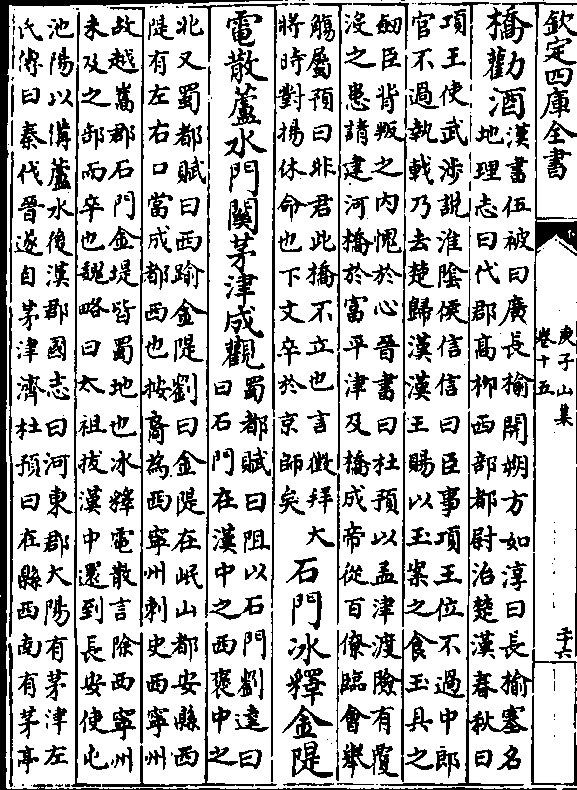 欽定四庫全書
庾子山集
卷十五
橋勸酒漢書伍被曰廣長榆開朔方如淳曰長榆塞名
地理志曰代郡髙柳西部都尉治楚漢春秋曰
項王使武涉説淮隂侯信信曰臣事項王位不過中郎
官不過執戟乃去楚歸漢漢王賜以玉案之食玉具之
劒臣背叛之内愧於心晉書曰杜預以孟津渡險有覆
沒之患請建河橋於富平津及橋成帝從百僚臨會舉
觴屬預曰非君此橋不立也言徵拜大
將時對揚休命也下文卒於京師矣
石門冰釋金隄
電散蘆水門關茅津成觀蜀都賦曰阻以石門劉逵曰
曰石門在漢中之西褒中之
北又蜀都賦曰西踰金隄劉曰金隄在岷山都安縣西
隄有左右口當成都西也按裔為西寧州刺史西寧州
故越嶲郡石門金堤皆蜀地也冰釋電散言除西寧州
未及之部而卒也魏略曰太祖拔漢中還到長安使屯
池陽以備蘆水後漢郡國志曰河東郡大陽有茅津左
氏傳曰秦伐晉遂自茅津濟杜預曰在縣西南有茅亭